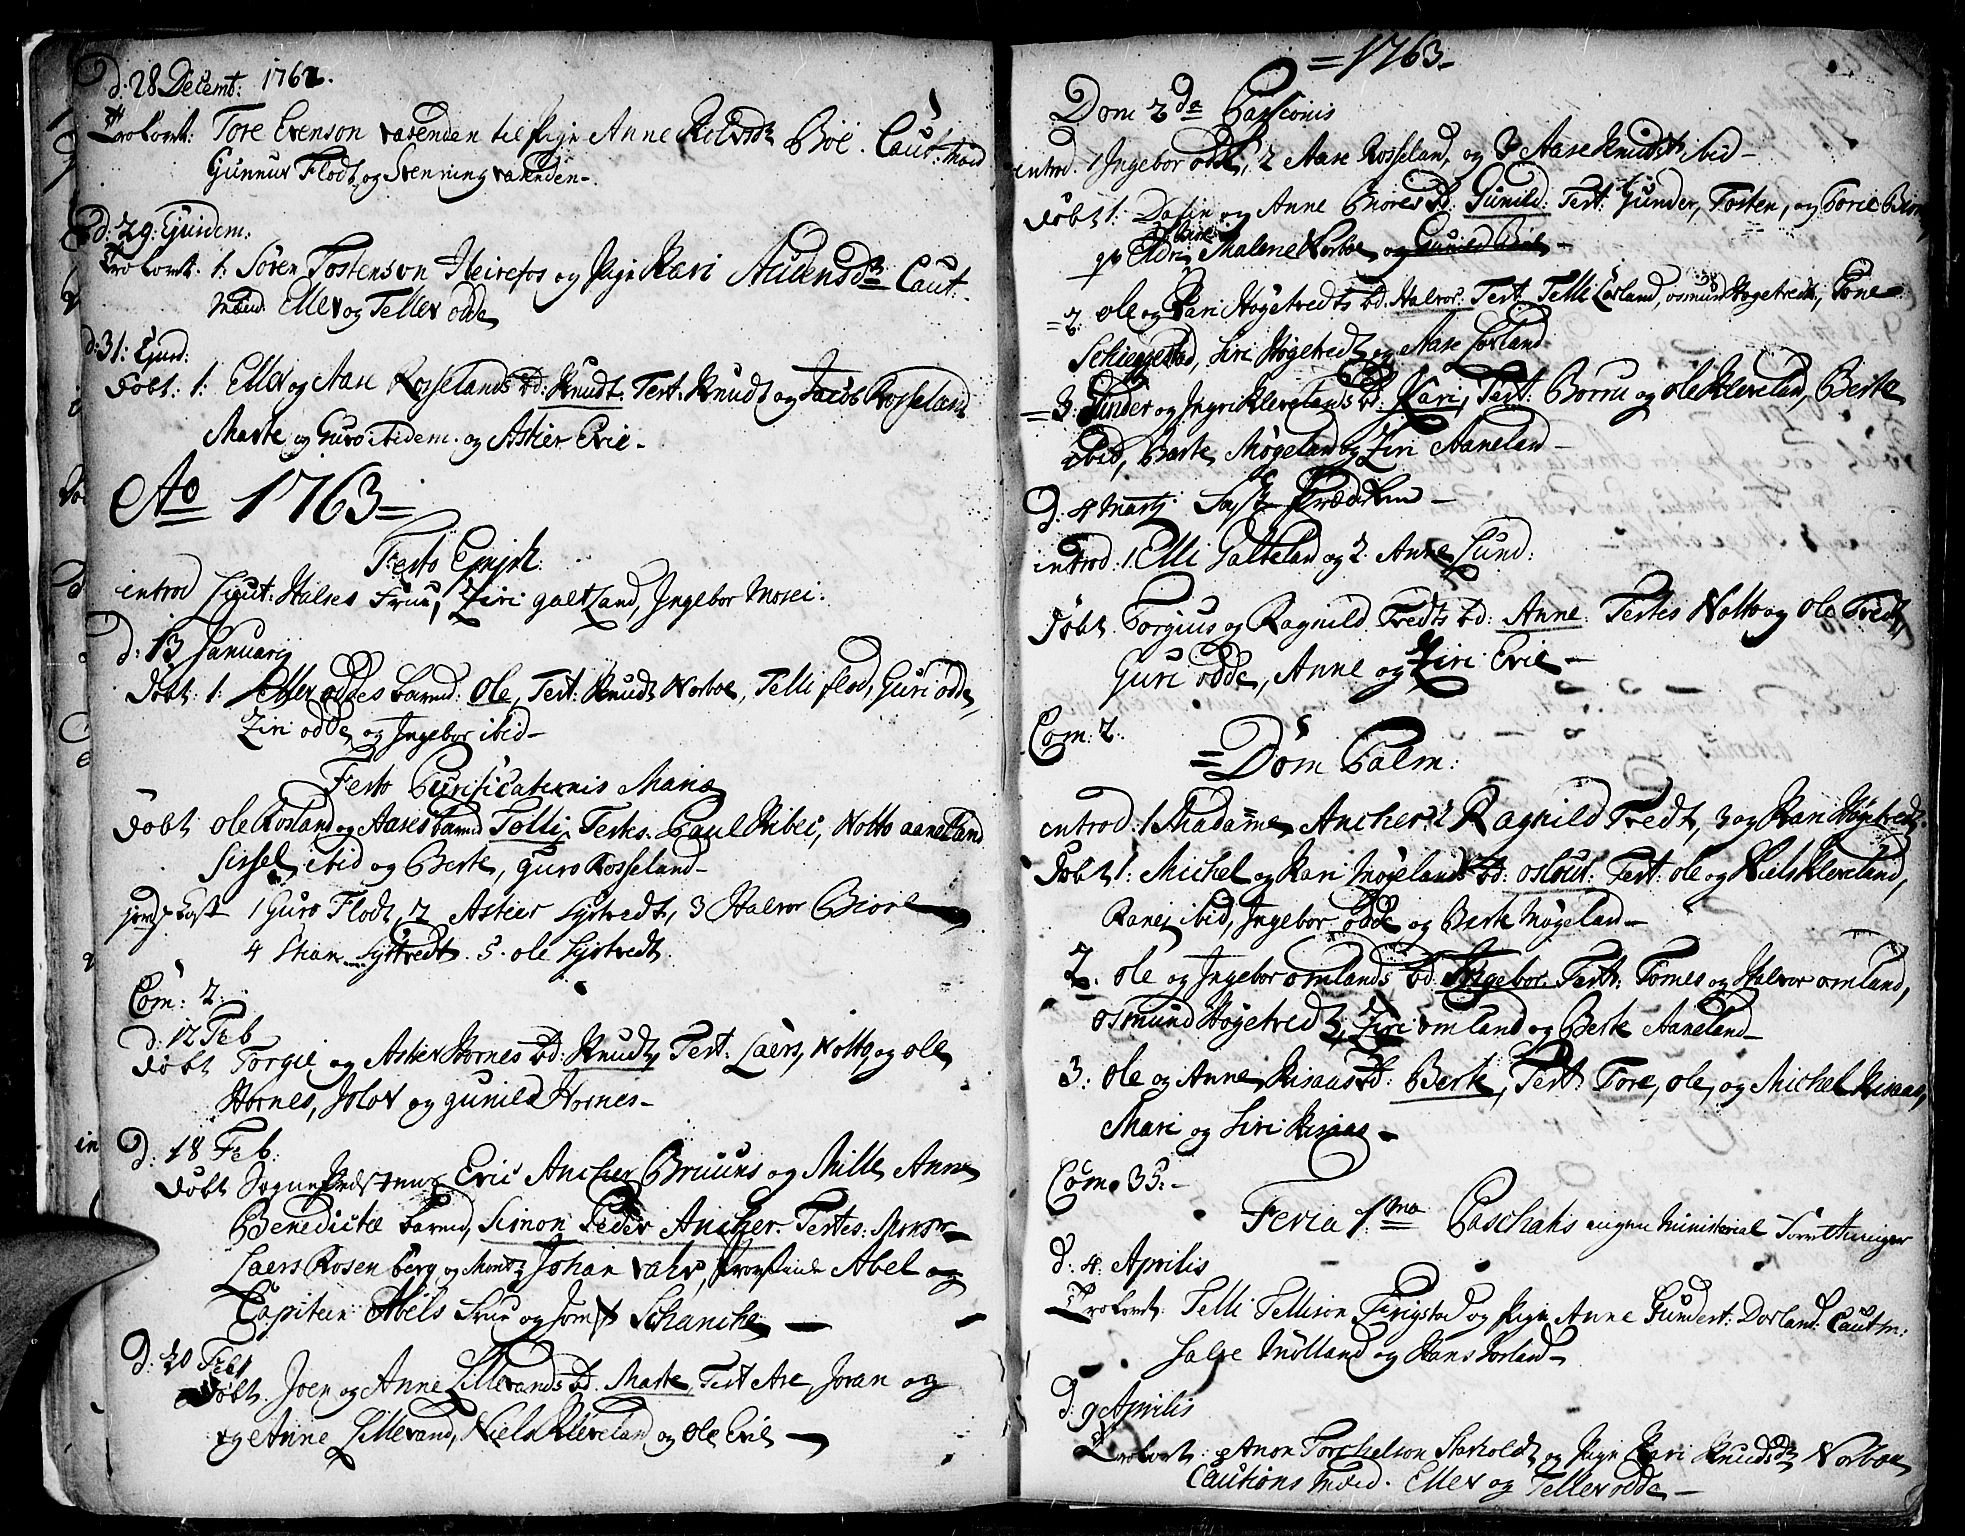 d: 28 Decemt: 1762.
Trolovt: Tore Evenson vasenden til Pige Anne Rolvsdt Böe. Caut: Mænd
Gunnur Flodt, og Svenning vasenden.
d: 29: Ejusdem:
Trolovt. 1: Sören Tostenson Heirefos og Pige Kari Audensdt Caut:
Mænd. Ellev og Tellev odde
d: 31: Ejusd:
Döbt: 1: Ellev og Aase Rosselands bd: Knudt. Test: Knudt og Jacob Rosseland
Marte og Guro ibidem. og Astier Evie.
Ao 1763
Festo Epiph:
introd Lieut: Halses Frue, Ziri galteland, Ingebor Mosei.
d: 13 Januarij
Döbt: 1: Tellev oddes barnd: Ole, Test: Knudt Norboe, Telli flod, Guri odde,
Ziri odde, og Ingebor ibid
Festo Purificationis Mariæ
Döbt ole Rosland og Aases barnd Telli, Testes. Paul Ribei, Notto aaneland
Sissel ibid og Berte, guro Rosseland
1 Guro Flodt, 2 Astier Lystvedt, 3 Halvor Biorl
4 Stian Lystvedt. 5. ole Lystvedt.
Com: 2.
d: 12 Feb
Döbt Torgie og Astier Hornes bd: Knudt, Test: Laers, Notto og ole
Hornes, Jolov og gunild Hornes
d: 18 Feb:
Döbt Sogne Eric Ancher Bruuns og Mille Anne
Benedictæ barnd, Simon Peder Ancher. Testes: Monsr
Laers Rosenberg og Johan vahr, Abel og
Capitein Abels Frue og Jomf Schanche
d: 20 Feb
Döbt. Joen og Anne Lillevands bd. Marte, Test Are, Joran og
og Anne Lillevand, Niels Kleveland og ole Evie
1763
Dom 2da Passionis
introd. 1 Ingebor odde, 2 Aase Rosseland, og 3 Aase Knudsdt ibid
Döbt 1: Dafin og Anne bd: Gunild: Test: Gunder, Tosten, og Torie
Eldri, Malene Norboe og Gunild
2: ole og Kari Høgetvedts bd: Halvor: Test Telli Lösland, osmund Høgetvedt, Tone
Schieggestad, Siri Høgetvedt, og Aase Lösland
3: Gunder og Ingri Klevelands bd: Kari, Test: Borru og ole Kleveland, Berte
ibid, Berte Møgeland og Ziri Aaneland
d. 4 Martj Faste Prædiken
introd: 1. Elli Galteland og 2. Anne Lund:
Döbt. Torgius og Ragnild Tvedts bd: Anne Testes Notto og Ole Tvedt,
Guri odde, Anne og Ziri Evie
Com: 2.
Dom Palm:
introd: 1 Madame Ancher. 2 Ragnild Tvedt, 3 og Kari Høgetvedt.
Döbt 1: Michel og Kari Møgelands bd: oslous: Test: ole og Niels Kleveland,
Ranei ibid, Ingebor odde og Berte Møgeland
2. ole og Ingebor omlands bd. Ingebor. Test: Tomes og Halvor omland,
osmund Høgetvedt, Ziri omland og Berte Aaneland
3: ole og Anne Risaas bd: Berte, Test: Tore, ole, og Michel Risaas,
Mari og Siri Risaas
Com. 35:
Feria 1ma Paschatis ingen Ministerial Forretninger
d: 4: Aprilis
Trolovt: Telli Tellison Frigstad og Pige Anne Gundert: Dosland. Caut M:
Salve Mölland og Hans
d 9 Aprilis
Trolovt: Anon Torchelson og Pige Kari Knudsdt Norboe
Cautions Mænd. Ellev og Tellev odde